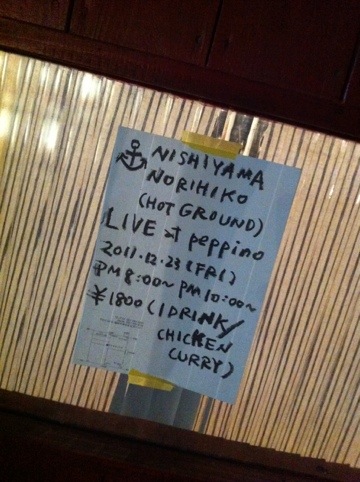 NISHIYAMA
NORIHIKO
(HOT GROUND)
LIVE at peppino
2011.12.23 (FRI)
PM 8:00~ PM 10:00~
¥1800 (1 DRINK/
CHICKEN
CURRY)